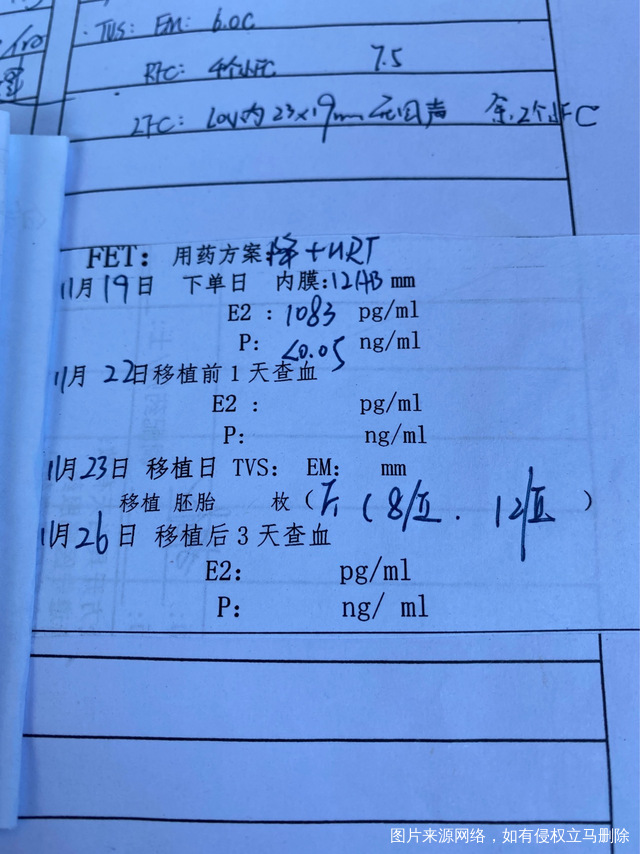 TVS: EM: 6.0C
RFC: 4个小FC 7.5
LFC: LOV内23×19mm无回声 余.2个小FC
FET: 用药方案 降+HRT
11月19日 下单日 内膜:12AB mm
E2 : 1083 pg/ml
P: <0.05 ng/ml
11月22日移植前1天查血
E2 : pg/ml
P: ng/ml
11月23日 移植日 TVS: EM: mm
移植 胚胎 枚( (8/II. 12/II )
11月26日 移植后3天查血
E2: pg/ml
P: ng/ ml
图片来源网络,如有侵权立马删除